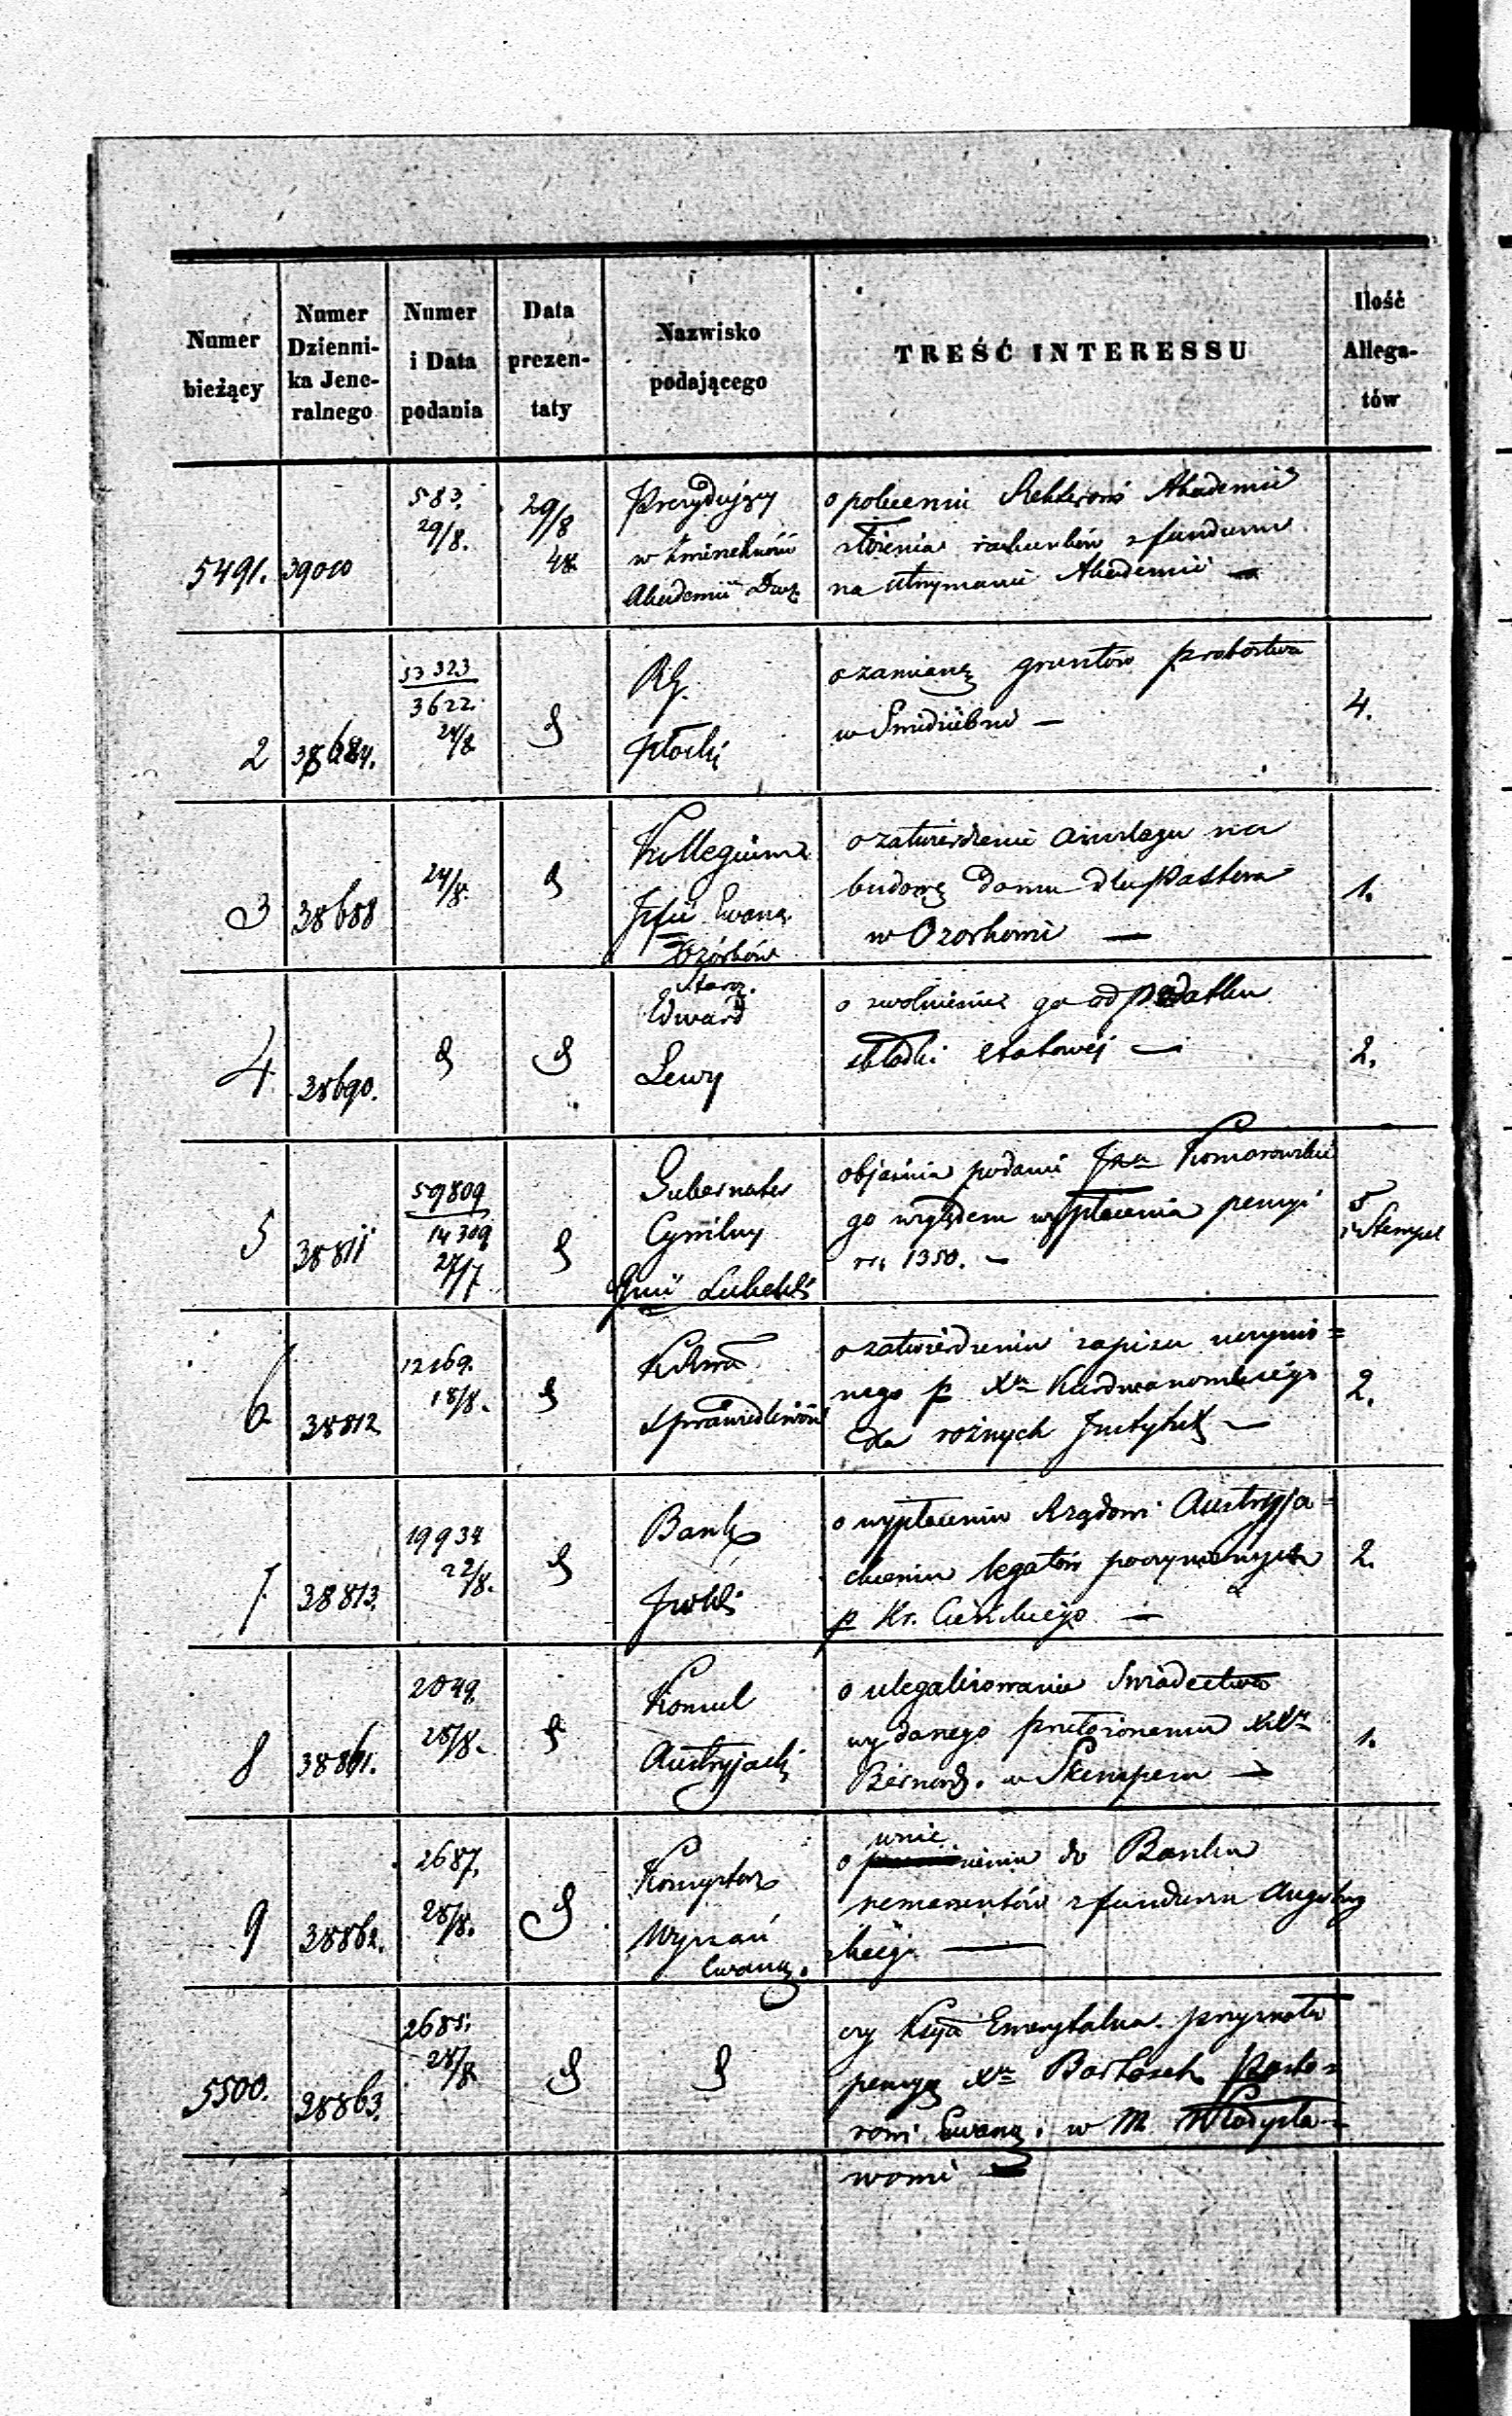 Numer bieżący
Numer Dzienni-
ka Jene-
ralnego
Numer i Data podania
Data prezen-
taty
Nazwisko podającego
TREŚĆ INTERESSU
Ilość Allega-
tów
5491.
39010
583.
29/8.
29/8
48
Prezydujący
w
Akademii Duch
o polecenie Rektorowi Akademii
złożenia rachunków z funduszu
na utrzymanie Akademii —
2
38684.
53323
3622.
24/8
RG.
Płocki
o zamianę gruntów probostwa
w —
4.
3
38688
24/8.
Kollegium
Ewang.
Ozorków
o zatwierdzenie anszlagu na
budowę domu dla Pastora
w Ozorkowie —
1.
4
38690.
Staroz.
Edward
Lewy
o zwolnienie go od podatku
składki etatowej —
2.
5
38811
59809
14309
27/7
Gubernator
Cywilny
Gnii Lubelski
objaśnia podanie Komorowskie
go względem wypłacenia pensyi
rs. 1350. —
5
i Stempel
6
38812
12169.
18/8.
Sprawiedliwości
o zatwierdzenie zapisu uczynio=
nego p Xa
dla rożnych Instytut —
2.
7
38813.
19934
22/8.
Bank
Polski
o wypłacenie Rządowi Austryja=
ckiemu legatów poczynionych
p Xr. —
2.
8
38861.
2049.
28/8.
Konsul
Austryjacki
o ulegalizowanie Świadectwa
wydanego przełożonemu XXm
Bernard. w —
1.
9
38862.
2687.
28/8.
Konsystorz
Wyznań
Ewang.
wnie
o sienie do Banku
remanentów z funduszu Augsburg
skiego —
5500.
38863.
2685.
28/8
czy Kssya Emerytalna przyznała
pensyę Xu Bartosch Pasto=
rowi Ewang. w M. Władysła=
wowie —